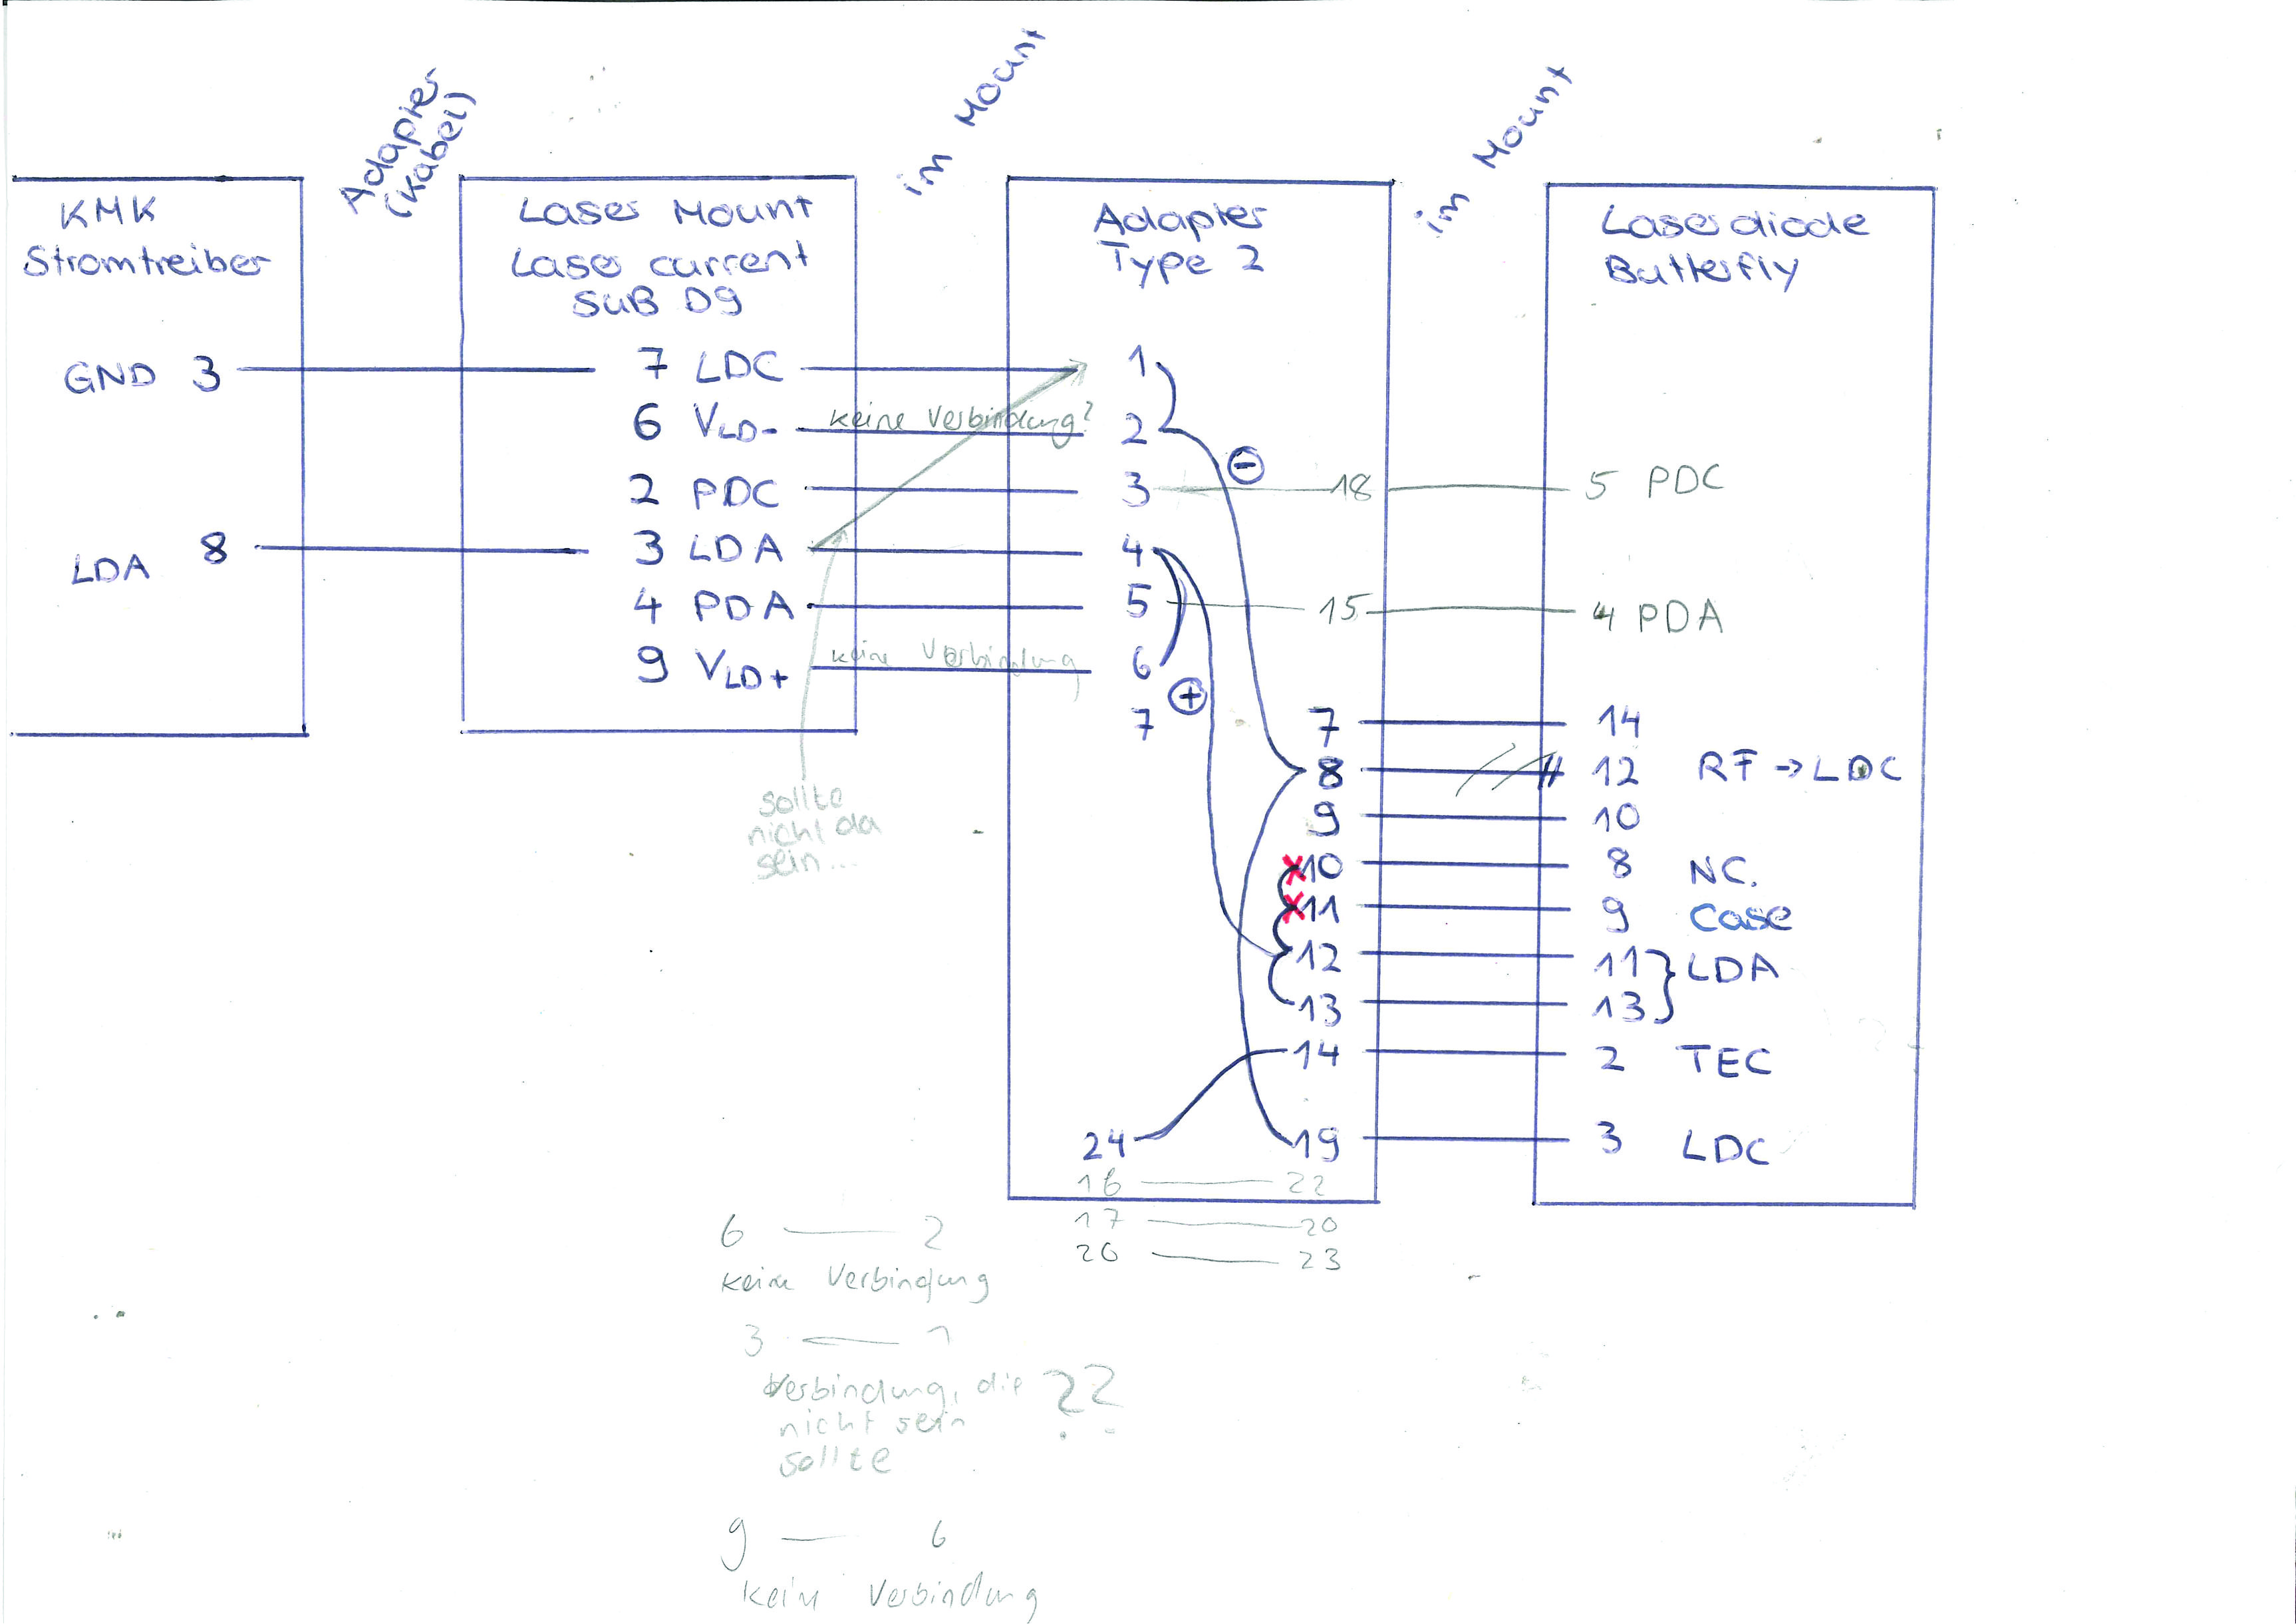 Adapter
(Kabel)
im Mount
im Mount
KMK
Stromtreiber
GND 3
LDA 8
Laser Mount
Laser current
SUB D9
7 LDC
6 VLD-
2 PDC
3 LDA
4 PDA
9 VLD+
keine Verbindung?
keine Verbindung
sollte
nicht da
sein...
Adapter
Type 2
1
2
3
4
5
6
7
⊖
⊕
18
15
7
8
9
x10
x11
12
13
14
24 19
16 — 22
17 — 20
26 — 23
Laserdiode
Butterfly
5 PDC
4 PDA
14
12 RF → LDC
10
8 NC.
9 Case
11 } LDA
13
2 TEC
3 LDC
6 — 2
keine Verbindung
3 — 1
Verbindung, die ??
nicht sein
sollte
9 — 6
keine Verbindung